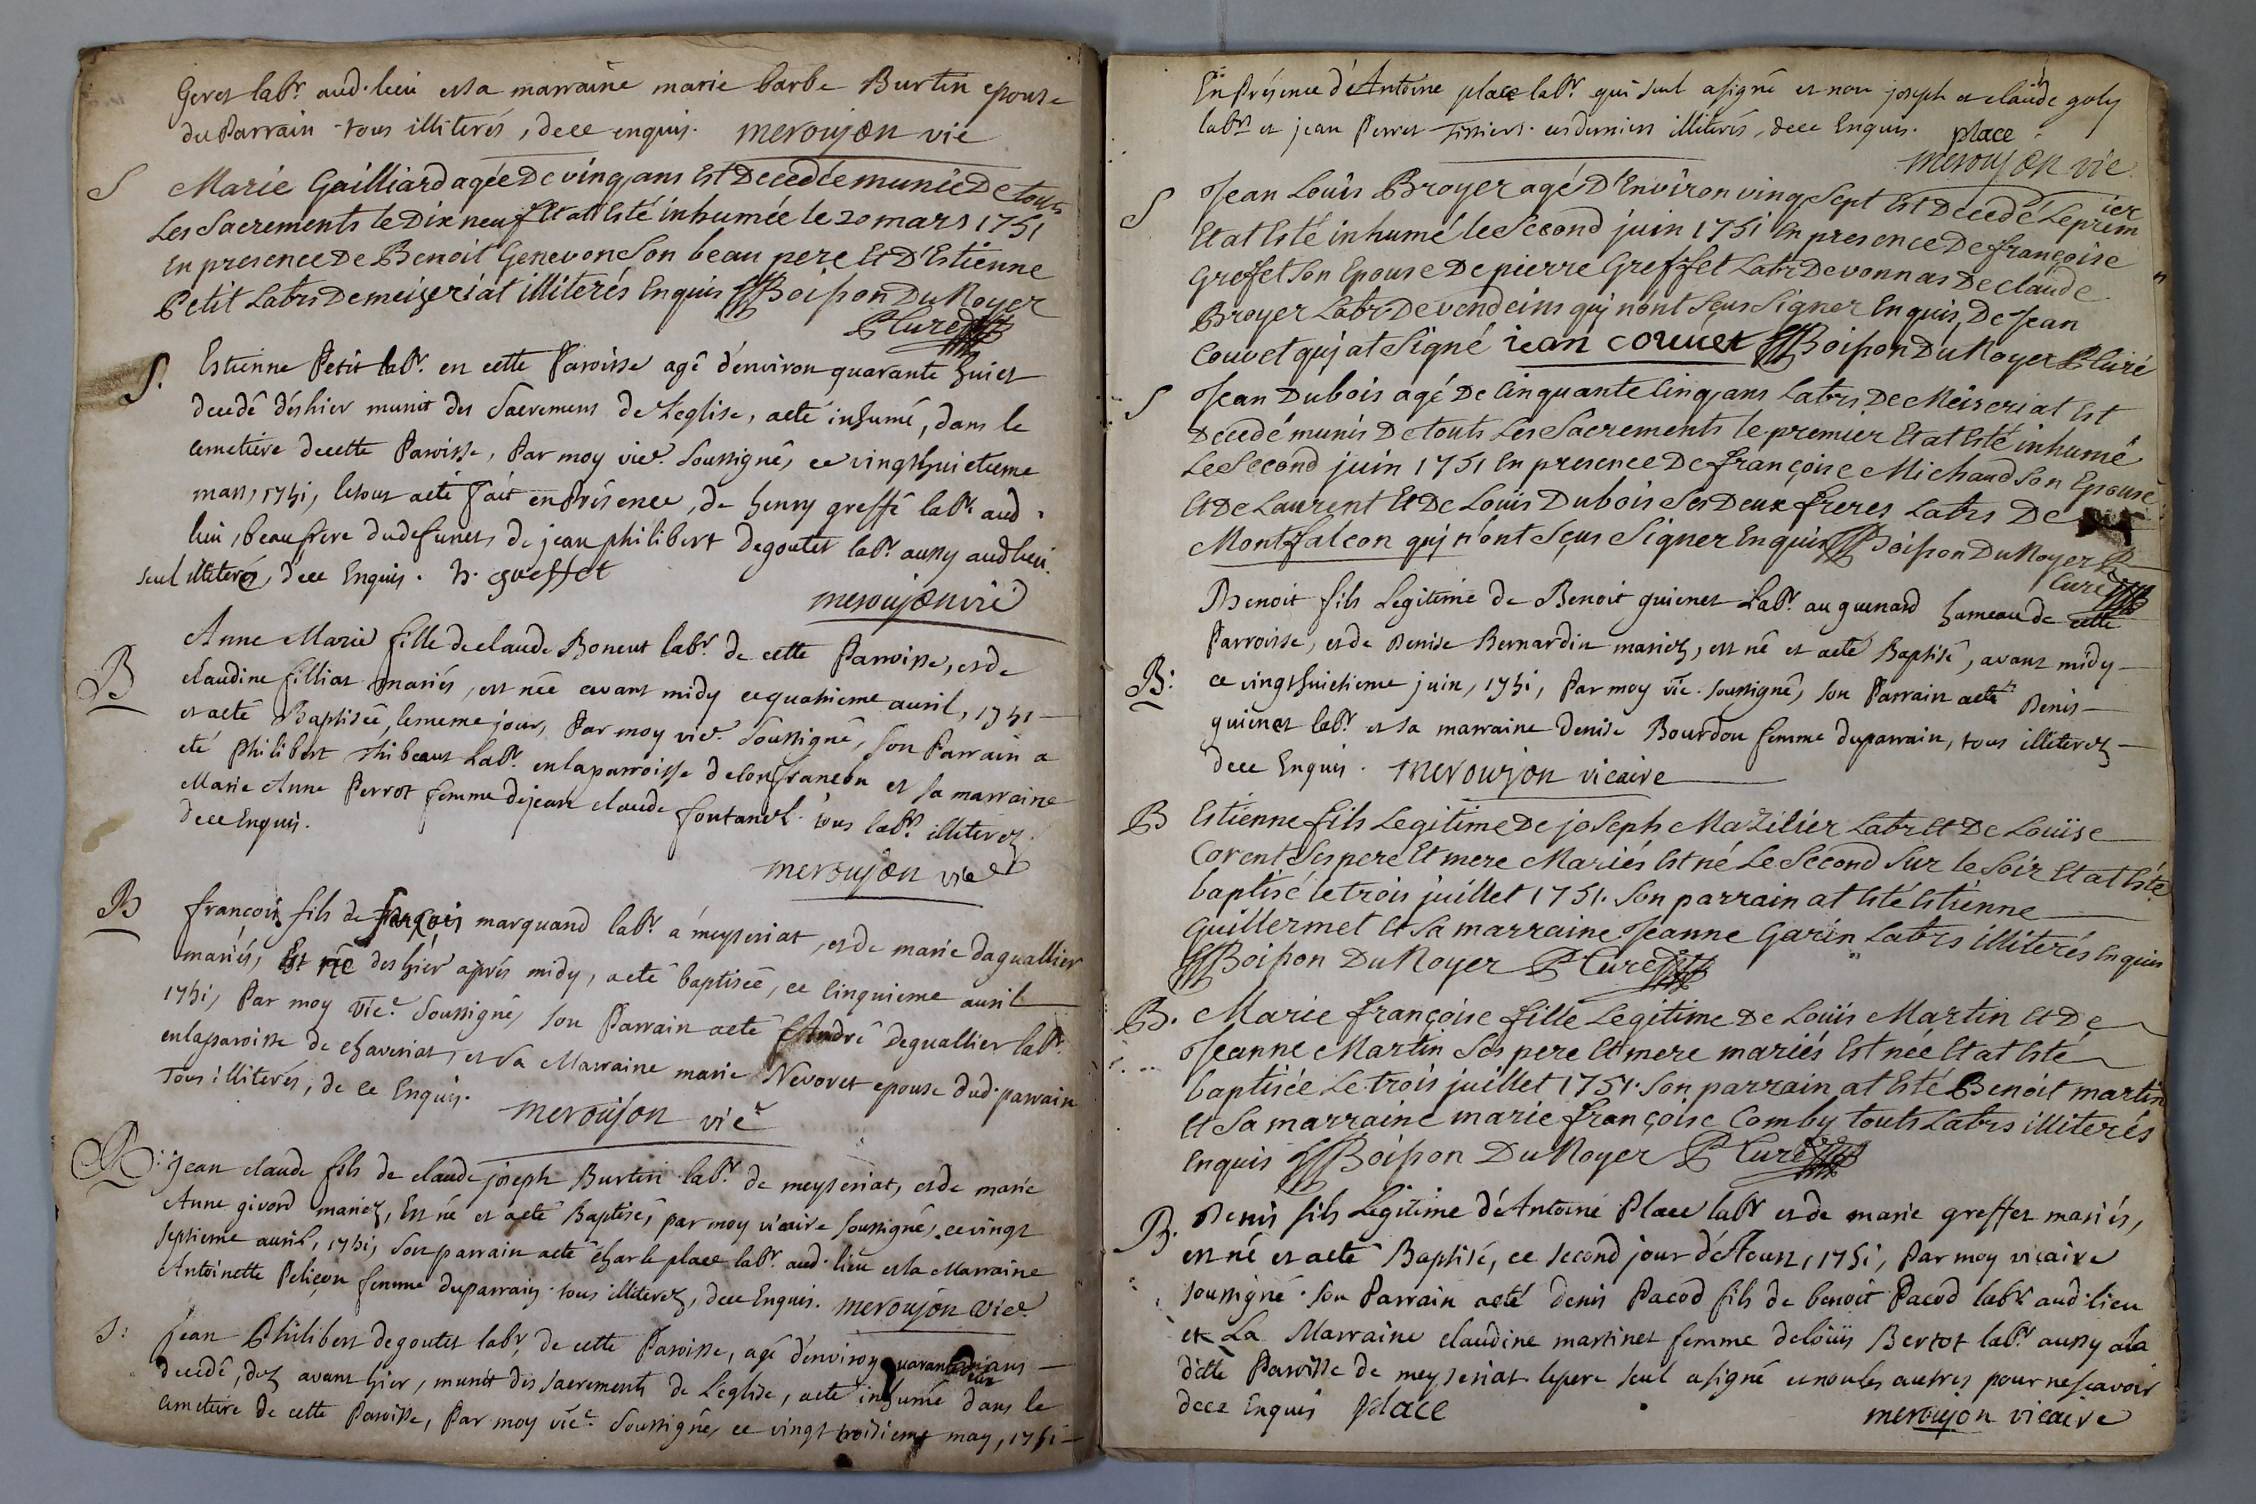 Geret labr. aud. lieu et sa marraine marie barbe Burtin epouse
du Parrain tous illiterés, dece enquis. meroujon vic
S Marie Gailliard agée De vingt ans Est Decedée munie De touts
Les Sacrements le Dix neuf Et at Esté inhumée le 20 mars 1751
En presence De Benoit Genevon Son beau pere Et D'Estienne
Petit Labrs De meizeriat illiterés Enquis Boisson Du Noyer
P Curé
S. Estienne Petit labr. en cette Paroisse agé d'environ quarante huict
decedé déshier munit des Sacremens de L'eglise, aeté inhumé, dans le
cemetiere decette Paroisse, Par moy vicr. Soussigné, ce vingthuictieme
mars, 1751, letout aeté fait enPrésence, de henry greffé labr. aud.
lieu, beaufrere dudefunct, de jean philibert Degoutet labr. aussy audlieu.
seul illiteré, dece Enquis. h. greffet
meroujon vic
B Anne Marie fille de claude Bonent labr. de cette Parroisse, et de
claudine filliat mariés, est née avant midy ce quatrieme avril, 1751
et aeté Baptisée, lememe jour, Par moy vicr. Soussigné, son Parrain a
eté Philibert Thibeaut Labr. enlaparroisse deconfrancon et sa marraine
Marie Anne Perrot femme dejean claude fontanel. tous labrs. illiterez
dece Enquis.
meroujon vicr
B francois fils de françois marquand labr. á meyseriat, et de marie daguallier
mariés, Est né des hier aprés midy, aeté baptiseé, ce Cinquieme avril
1751, Par moy vicr. Soussigné, son Parrain aeté André Deguallier labr.
enlaparoisse de chaveriat, et Sa Marraine marie Nevoret epouse dud. parrain
Tous illiterés, de ce Enquis.
meroujon vicr
B: Jean claude fils de claude joseph Burtin labr. de meyseriat, et de marie
Anne givord mariez, Est né et aeté Baptisé, par moy vicaire soussigné, ce vingt
septieme avril, 1751, son parrain aeté charle place labr. aud. lieu et la Marraine
Antoinette Peliçon femme duparrain. tous illiterez, dece Enquis. meroujon vicr
S: Jean Philibert degoutet labr, de cette Paroisse, agé d'environ quarante deux ans
decedé, dez avant hier, munit des sacrements de L'eglise, aeté inhumé dans le
cemetiere de cette Paroisse, Par moy vicr. Soussigné, ce vingt troisieme may, 1751
En Présence d'Antoine place labr. qui seul asigné et non joseph et claude goly
labrs. et jean Perret Tissiers. cesderniers illiterés, dece Enquis. place
meroujon vic
S Jean Louis Broyer agé D'Environ vingt Sept Est Decedé Le premier
Et at Esté inhumé le Second juin 1751 En presence De françoise
Grefet Son Epouse De pierre Greffet Labr De vonnas De claude
Broyer Labr De vendeins quj nont Sçus Signer Enquis, De Jean
Couvet quj at Signé iean couuet Boisson Du Noyer P Curé
S Jean Dubois agé De Cinquante Cinq ans Labrs De Meiseriat Est
Decedé munis De touts Les Sacrements le premier Et at Esté inhumé
Le Second juin 1751 En presence De françoise Michaud Son Epouse
Et De Laurent Et De Louis Dubois Ses Deux freres Labrs De
Montfalcon quj n'ont Sçus Signer Enquis Boisson Du Noyer P
Curé
Benoit fils Legitime de Benoit guienet Labr. au guenard hameau de cette
Parroisse, et de Denise Bernardin mariez, est né et aeté Baptisé, avant midy
B: ce vingthuictieme juin, 1751, Par moy vic. soussigné, son Parrain aeté Denis
guienet labr. et sa marraine Denise Bourdon femme duparrain, tous illiterez
dece Enquis. merouyon vicaire
B Estienne fils Legitime De joseph Mazilier Labr Et De Louïse
Corent Ses pere Et mere Mariés Est né Le Second Sur le Soir Et at Esté
baptisé le trois juillet 1751. Son parrain at Esté Estienne
Guillermet Et Sa marraine Jeanne Garin Labrs illiterés Enquis
Boisson Du Noyer P Curé
B. Marie françoise fille Legitime De Louïs Martin Et De
Jeanne Martin Ses pere Et mere mariés Est née Et at Esté
baptisée Le trois juillet 1751. Son parrain at Esté Benoit martin
Et Sa marraine marie françoise Comby touts Labrs illiterés
Enquis Boisson Du Noyer P Curé
B. Denis fils Légitime d'Antoine Place labr et de marie greffet mariés,
est né et aeté Baptisé, ce second jour d'Aoust, 1751, Par moy vicaire
soussigné. son Parrain aeté denis Pacod fils de benoit Pacod labr. aud. lieu
et La Marraine claudine martinet femme deloüis Bertot labr. aussy ala
ditte Paroisse de meyseriat lepere seul asigné etnonles autres pour nesçavoir
dece Enquis place
merouyon vicaire